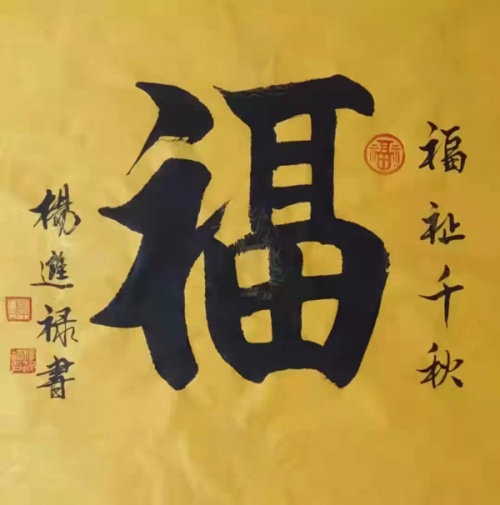 福祉千秋
福
楊進祿書